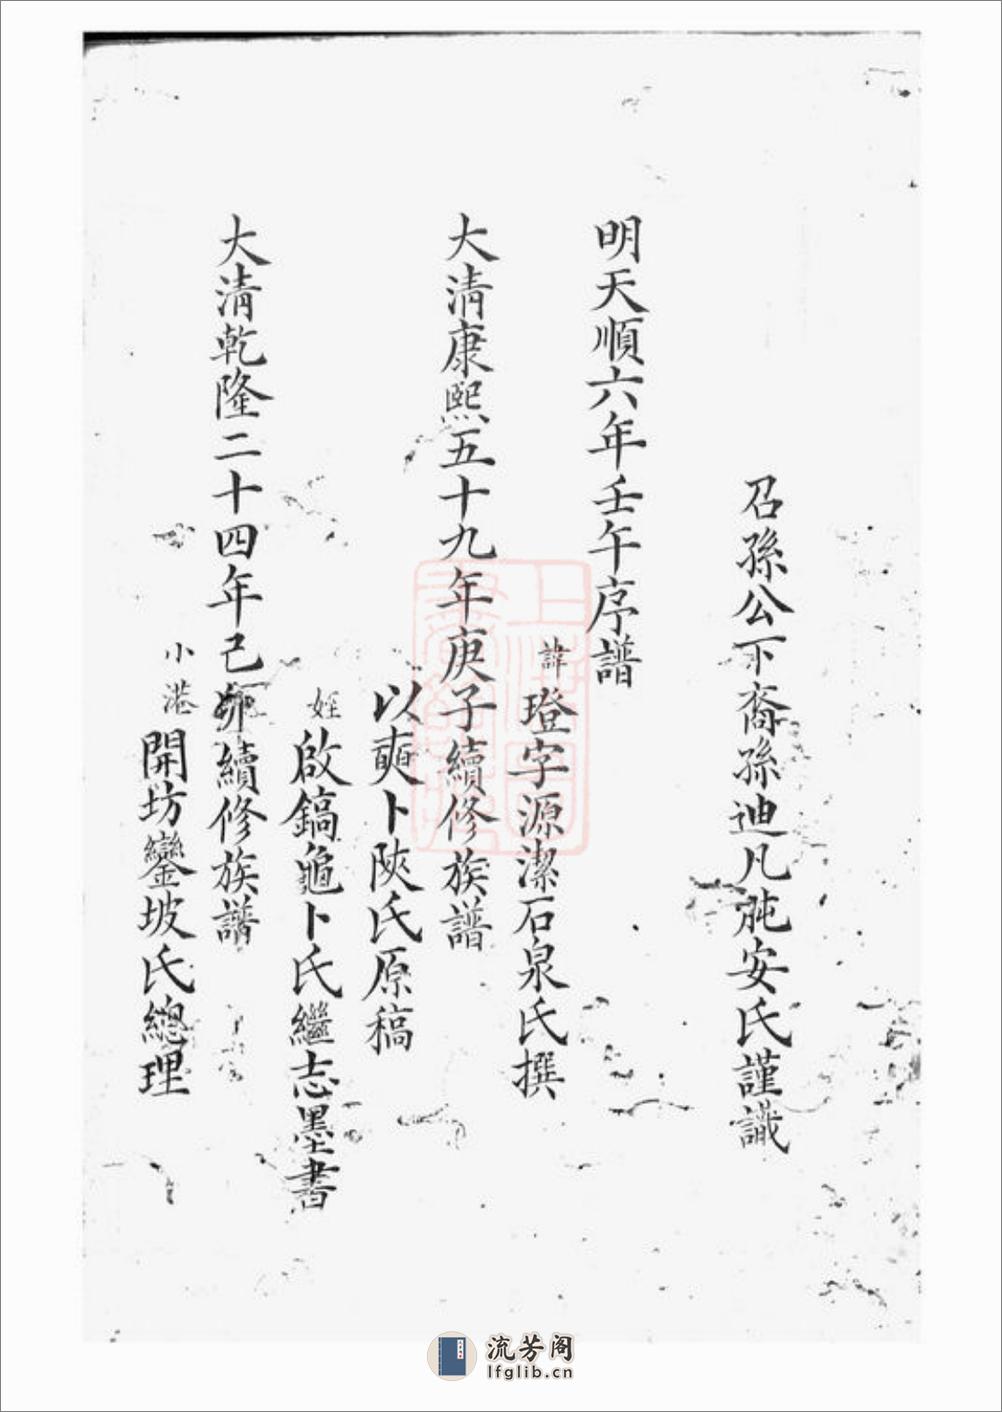 召孫公下裔孫迪凡肫安氏謹識
明天順六年壬午序譜
諱璒字源潔石泉氏撰
大清康熙五十九年庚子續修族譜
以奭卜陝氏原稿
姪啟鎬龜卜氏繼志墨書
大清乾隆二十四年己卯續修族譜
小港開坊鑾坡氏總理
流芳阁
lfglib.cn